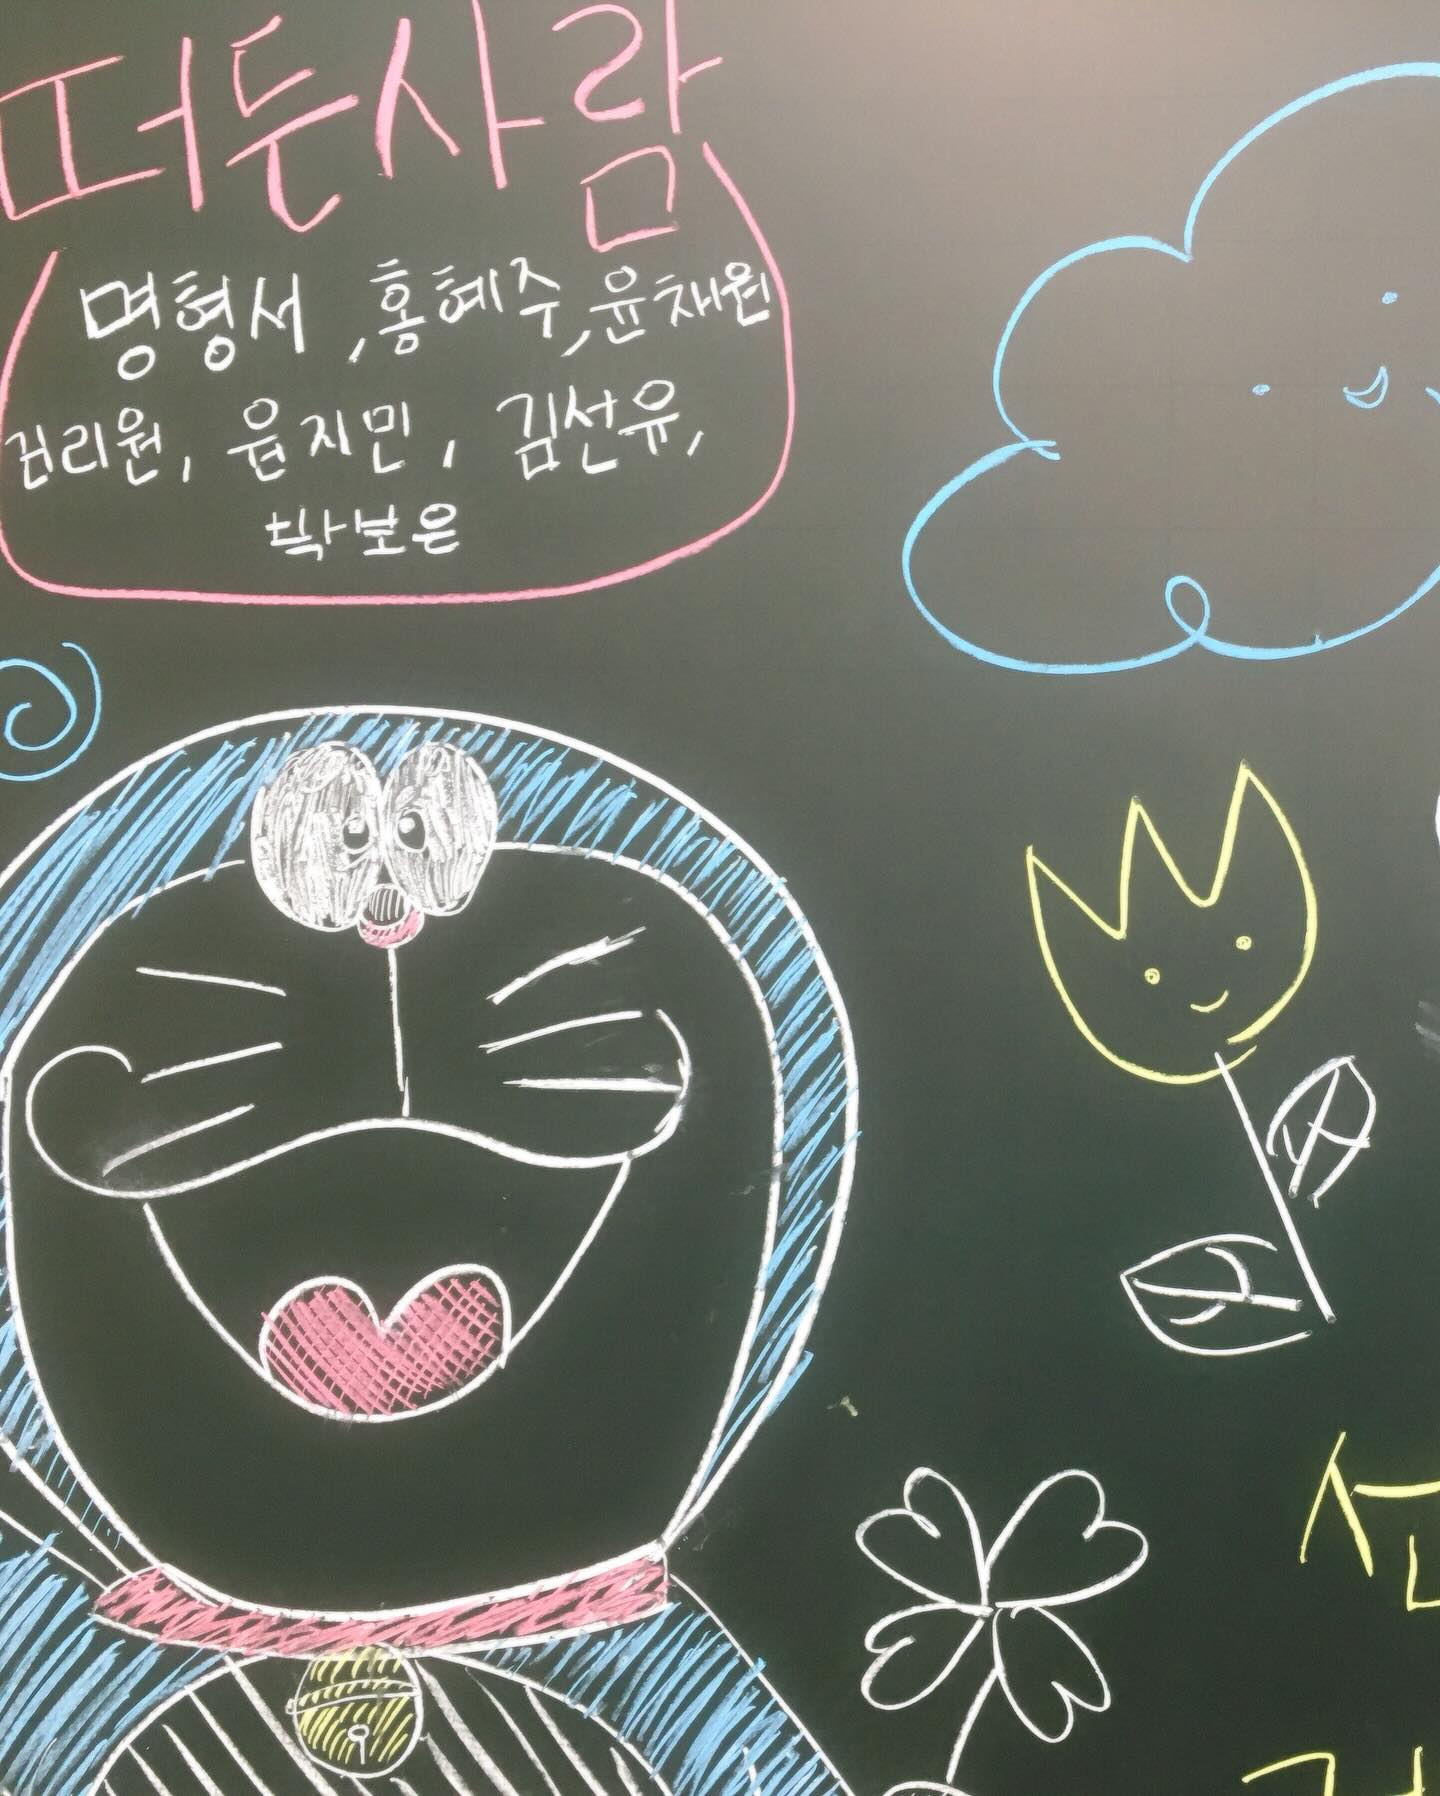 떠든사람
명형서, 홍혜주, 윤채원
김리원, 윤지민, 김선유,
박보은